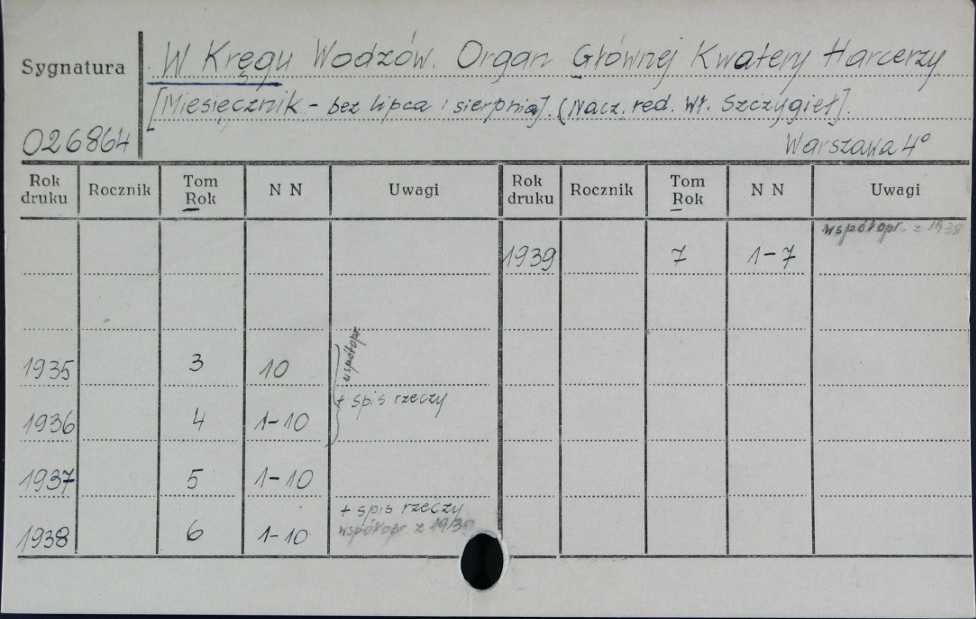 Sygnatura
W Kręgu Wodzów. Organ Głównej Kwatery Harcerzy
[Miesięcznik - bez lipca i sierpnia]. (Nacz. red. Wł. Szczygieł].
026864
Warszawa 4°
Rok druku Rocznik Tom Rok N N Uwagi Rok druku Rocznik Tom Rok N N Uwagi
współopr. z 1938
1939 7 1-7
1935 3 10 współopr
+ spis rzeczy
1936 4 1-10
1937 5 1-10
+ spis rzeczy
1938 6 1-10 współopr z